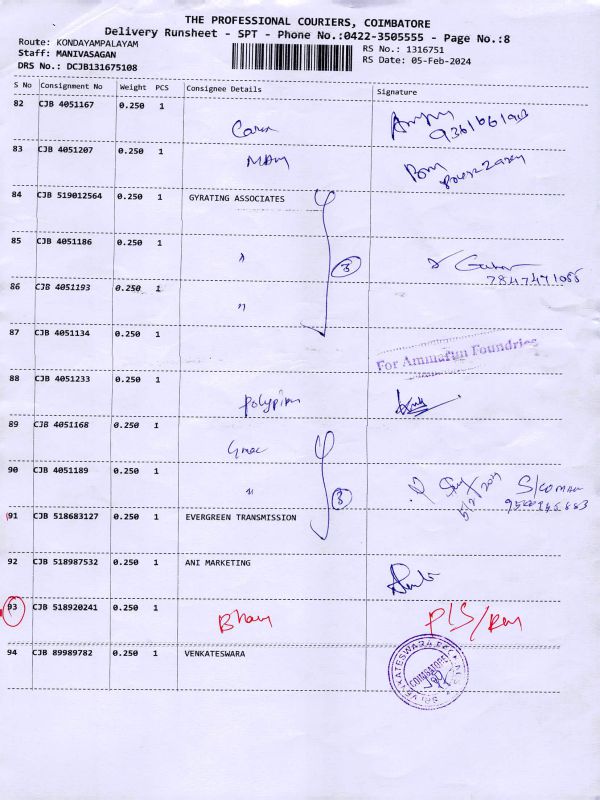 THE PROFESSIONAL COURIERS, COIMBATORE
Delivery Runsheet - SPT - Phone No.:0422-3505555 - Page No.:8
Route: KONDAYAMPALAYAM
Staff: MANIVASAGAN
DRS No.: DCJB131675108
RS No.: 1316751
RS Date: 05-Feb-2024
S No Consignment No Weight PCS Consignee Details Signature
82 CJB 4051167 0.250 1
83 CJB 4051207 0.250 1
84 CJB 519012564 0.250 1 GYRATING ASSOCIATES
85 CJB 4051186 0.250 1
3
86 CJB 4051193 0.250 1 "
87 CJB 4051134 0.250 1
For Ammarun Foundries
88 CJB 4051233 0.250 1
89 CJB 4051168 0.250 1
90 CJB 4051189 0.250 1 "
3
5/2/2024
91 CJB 518683127 0.250 1 EVERGREEN TRANSMISSION
92 CJB 518987532 0.250 1 ANI MARKETING
93 CJB 518920241 0.250 1
94 CJB 89989782 0.250 1 VENKATESWARA
COIMBATORE